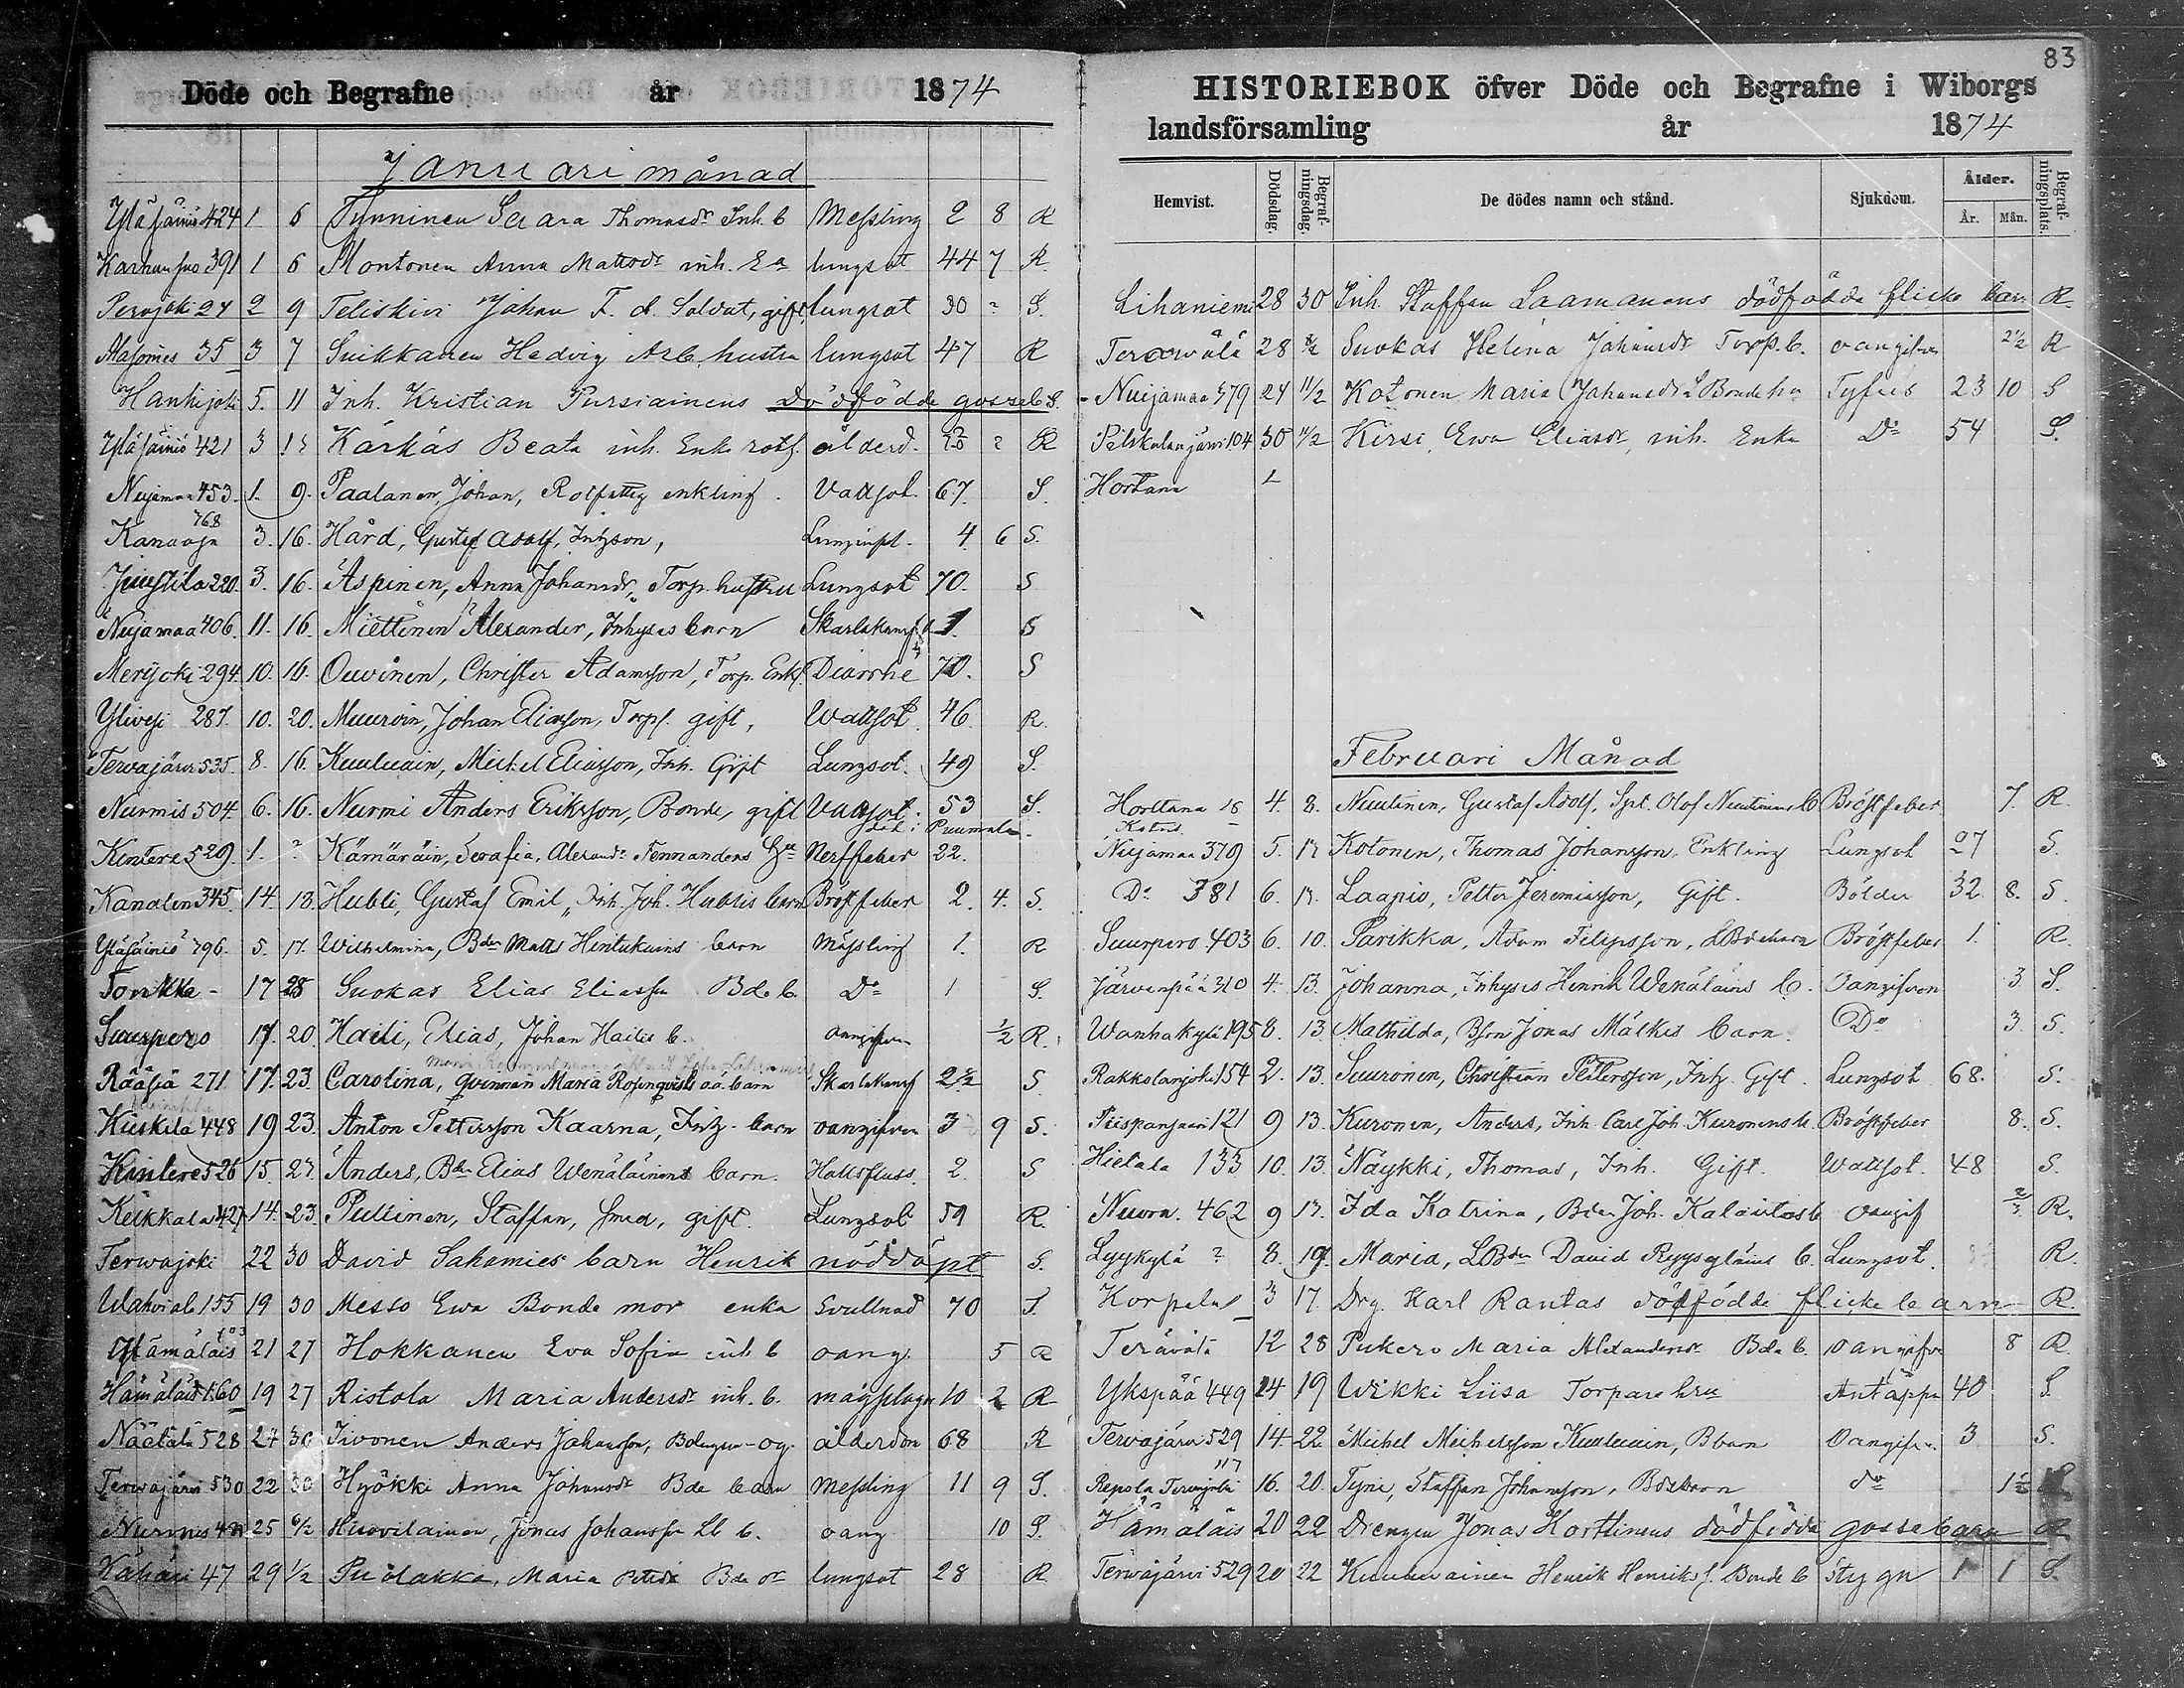 Döde och Begrafne år 1874
Januari månad
Yläsäiniö 424 1 6 Tynninen Saara Thomasdr Inh. b Messling 2 8 R
Karhusuo 391 1 6 Montonen Anna Mattsdr inh. Ea lungsot 44 7 R.
Perojoki 24 2 9 Teliskivi Johan F. d. Soldat, gift, lungsot 30 ? S.
Alasomes 35 3 7 Suikkanen Hedvig Arb. hustru lungsot 47 R
Hanhijoki 5. 11 Inh. Kristian Pursiainens dödfödde gosseb S.
Yläsäiniö 421 3 13 Kärkäs Beata inh. Enk. rotf. ålderd. ? R
Nuijamaa 453. 1. 9. Paalanen, Johan, Rotfattig enkling. Vattsot. 67. S.
Kananoja 768 3. 16. Hård, Gustaf Adolf, Inhyson, Lunginfl. 4 6 S.
Juustila 220. 3. 16. Äspinen, Anna Johansdr, Torp. hustru Lungsot 70. S
Nuijamaa 406. 11. 16. Miettinen Alexander, Inhyses barn Skarlakansf. 1. S
Merijoki 294. 10. 16. Ouvinen, Christer Adamsson, Torp. Enkl. Diarrhé 70. S
Ylivesi 287. 10. 20. Muurvin, Johan Eliasson, Torp. gift, Wattsot 46 R.
Terwajärvi 535. 8. 16. Kuuluain, Michel Eliasson, Inh. Gift Lungsot. 49 S.
Nurmis 504. 6. 16. Nurmi Anders Eriksson, Bonde, gift Vattsot. 53 S.
död i Puumala.
Kintere 529. 1. ? Kämäräin, Serafia, Alexandr Fennanders Hu Nerffeber 22.
Kanalen 345. 14. 18. Hubli, Gustaf Emil, Inh. Joh. Hublis barn Bröstfeber 2. 4. S.
Yläsäiniö 796. 5. 17. Wilhelmina, Bdn Matts Hintukains barn Mässling 1. R
Tonkka - 17 25 Suokas Elias Eliassn Bde b. Do 1 S.
Suurpero 17. 20. Haili, Elias, Johan Hailis b. oangifven 1/2 R.
Rääsiä 271 17. 23. Carolina, qvinnan Maria Rosenqvists oä. barn Skarlakansf 2 1/2 S
Kiiskilä 448 19 23. Anton Pettersson Kaarna, Inh. barn oangifven 3 9 S.
Kintere 526 15. 27. Anders, Bdn Elias Wenäläinens barn. Halsfluss. 2. S
Keikkala 427 14. 23 Pullinen, Staffan, Smed, gift. Lungsot 59 R.
Terwajoki 22 30 David Sahamies barn Henrik nöddöpt S.
Wahviala 155 19 30 Messo Ewa Bonde mor enka Svullnad 70 S.
Hämäläis 703 21 27 Hokkanen Eva Sofia inh b oang. 5 R
Hämäläis 160 19 27 Ristola Maria Andersdr inh. b. magplågn 10 2 R
Näätälä 528 24 30 Iivonen Anders Johansson, Bdengsn-og. ålderdom 68 R
Terwajärvi 530 22 30 Hyökki Anna Johansdr Bde barn Messling 11 9 S.
Nurmis 25 6/2 Huovilainen, Jonas Johanssn Lb b. oang 10 S.
Kähäri 47 29 1/2 Puolakka, Maria Petersdr Bde dr lungsot 28 R.
83
HISTORIEBOK öfver Döde och Begrafne i Wiborgs
landsförsamling år 1874
Hemvist. Dödsdag. Begrafningsdag. De dödes namn och stånd. Sjukdom. Ålder. År. Mån. Begrafningsplats.
Lihaniemi 28 30 Inh. Staffan Laamanens dödfödda flicke barn R.
Terawälä 28 8/2 Suokas Helena Johansdr Torp. b. oangifven 2 1/2 R
Nuijamaa 379 24 11/2 Kotonen Maria Johansdr L Bonde hu Tyfus 23 10 S
Pilskalanjärvi 104 30 11/2 Kirsi, Ewa Eliasdr, inh. Enka Do 54 S.
Hortana 1
Februari Månad
Horttana 18 4. 8. Nuutinen, Gustaf Adolf, Spt. Olof Nuutinens b Bröstfeber 7. R.
Nuijamaa 379 5. 17. Kotonen, Thomas Johansson, Enkling Lungsot 27 S.
Do 381 6. 17. Laapio, Petter Jeremiasson, Gift. Bölder 32. 8. S.
Suurpero 403 6. 10. Parikka, Adam Filipsson, LBdebarn Bröstfeber 1. R.
Järvenpää 310 4. 13. Johanna, Inhyses Henrik Wenäläins b. Oangifven 3. S.
Wanhakylä 195 8. 13. Mathilda, Bson Jonas Mälkis barn. Do 3. S.
Rakkolanjoki 154 2. 13. Suuronen, Christian Pettersson, Inh. Gift. Lungsot 68. S.
Piispansaari 121 9 13. Kuronen, Anders, Inh. Carl Joh. Kuronens b. Bröstfeber 8. S.
Hietala 133 10. 13. Näykki, Thomas, Inh. Gift. Wattsot. 48 S.
Nuora. 462 9 17. Ida Katrina, Bden Joh. Kalaintos b Oangif R.
Lyykylä ? 8. 19. Maria, LBdn David Ryysyläins b. Lungsot. R.
Korpela 3 17. Drg. Karl Rantas dödfödda flicke barn R.
Terävälä 12 28 Pukero Maria Alexandersdr Bde b. oangifven 8 R.
Ykspää 449 14 19 Wikki Liisa Torpare hru Andtäppa 40 S.
Tervajärvi 529 14. 22. Michel Michelsson Kuuluain, Bbarn Oangifven 3 S.
Repola Tervajoki 117 16. 20. Tyni, Staffan Johansson, Bdebarn do 1 1/2
Hämäläis 20 22 Drengen Jonas Horttinens dödfödde gossebarn R
Terwajärvi 529 20 22 Kuuluvainen Henrik Henrikss. Bonde b Stygn 1 1 S.